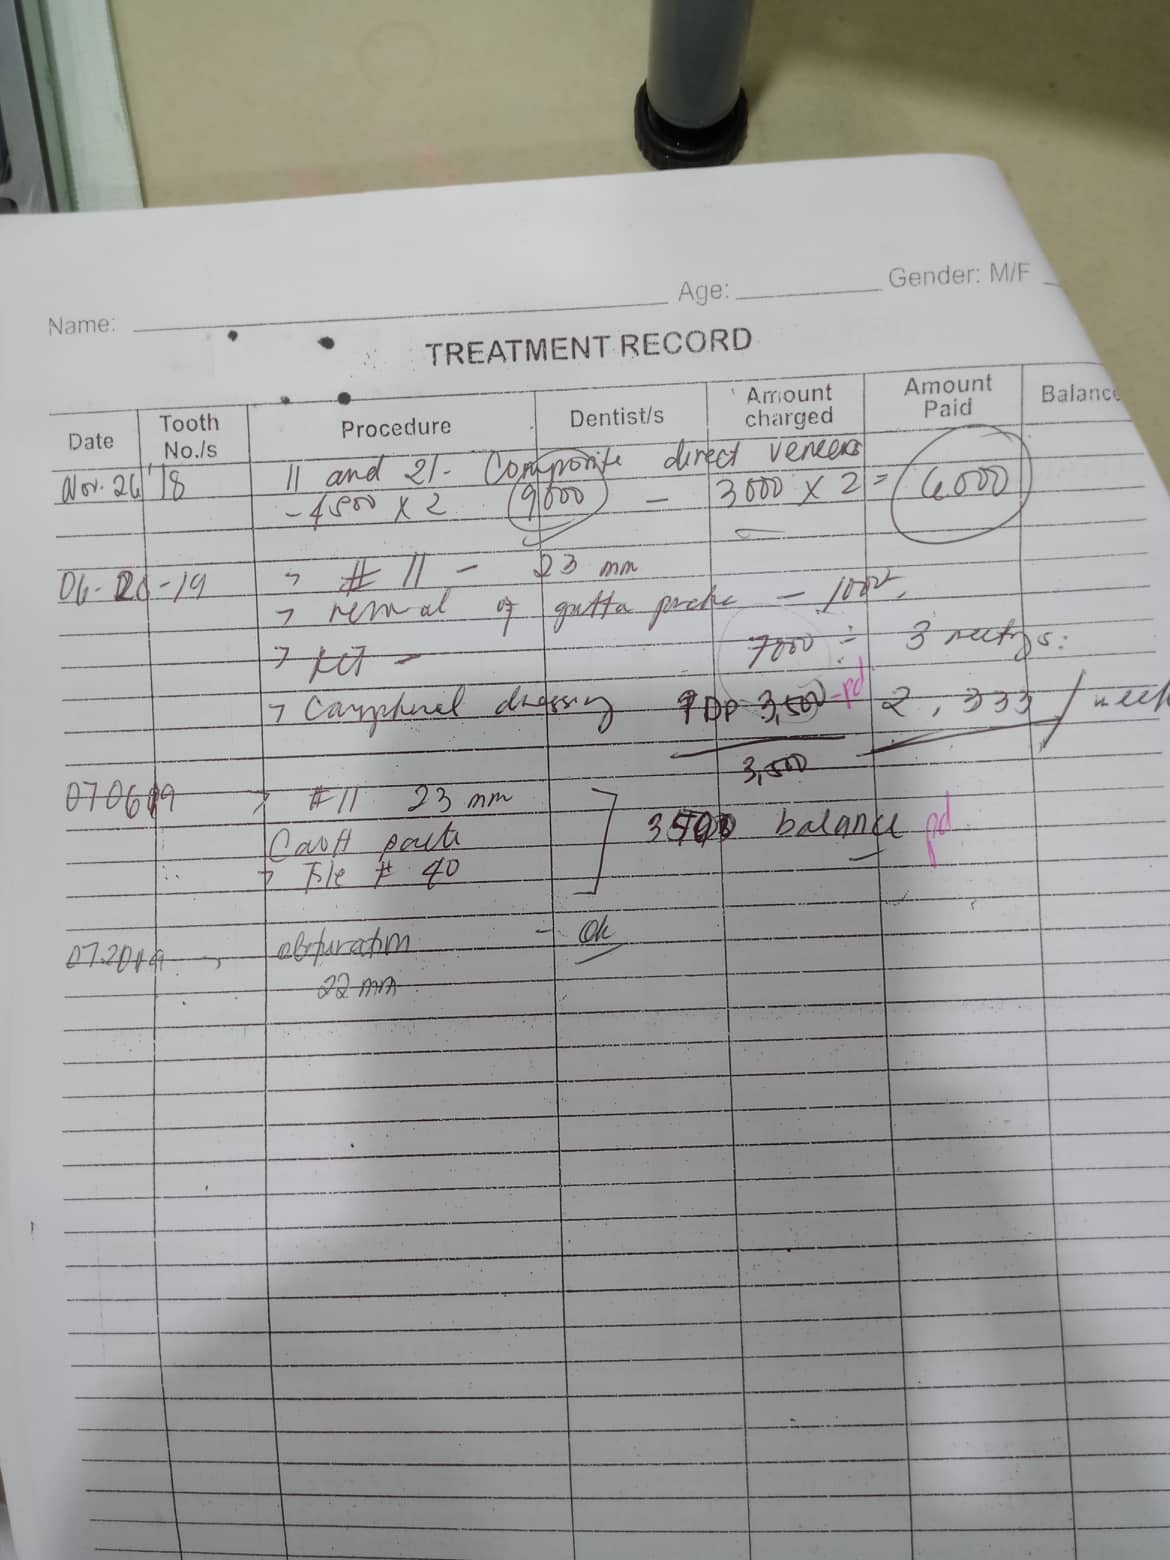 Name: Age: Gender: M/F
TREATMENT RECORD
Date Tooth No./s Procedure Dentist/s Amount charged Amount Paid Balance
Nov. 26 '18 11 and 21- Composite direct veneers
- 4500 x 2 9000 - 3000 x 2 = 6000
06- -19 # 11 - 23 mm
removal of gutta - 
RCT - 7000 ÷ 3
Camphenol dressing DP 3,500 -pd 2,333 / week
3,500
070619 #11 23 mm
3500 balance pd
File # 40
072019 obturation - Ok
22 mm